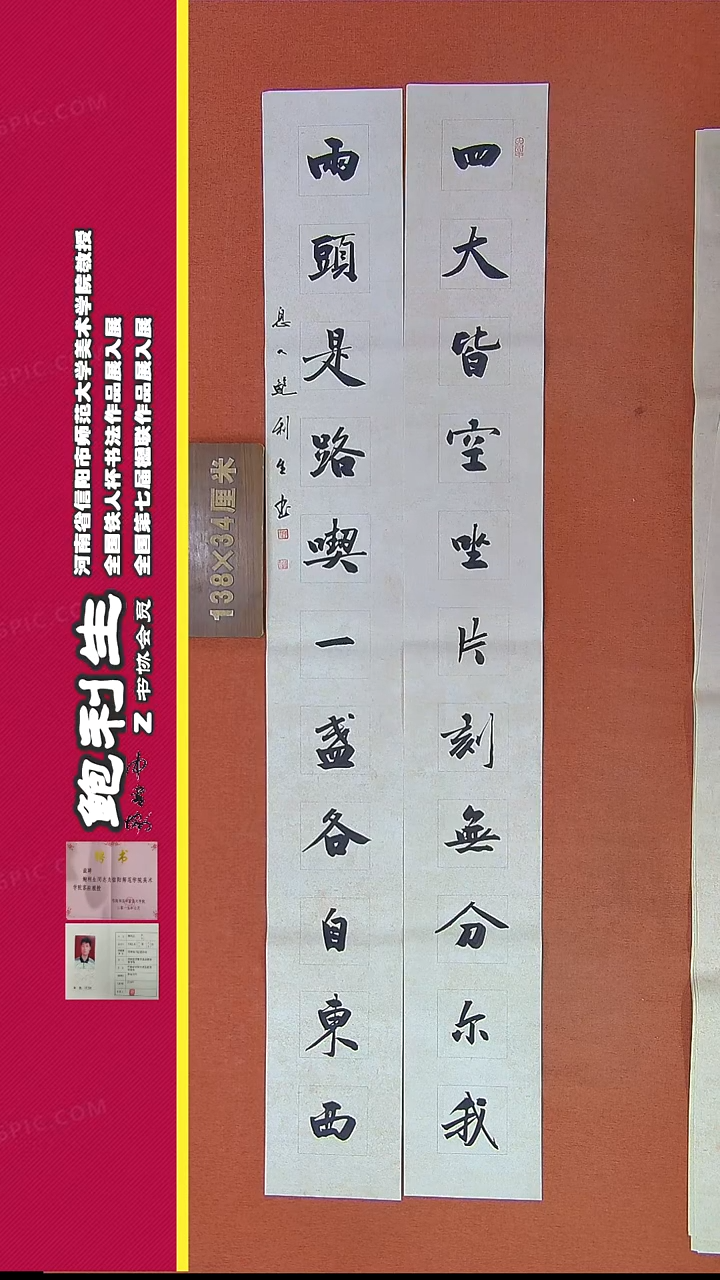 四大皆空坐片刻無分尔我
兩頭是路喫一盏各自東西
息人鲍利生书
138×34厘米
河南省信阳市师范大学美术学院教授
全国铁人杯书法作品展入展
全国第七届楹联作品展入展
鲍利生
Z 书协会员
聘书